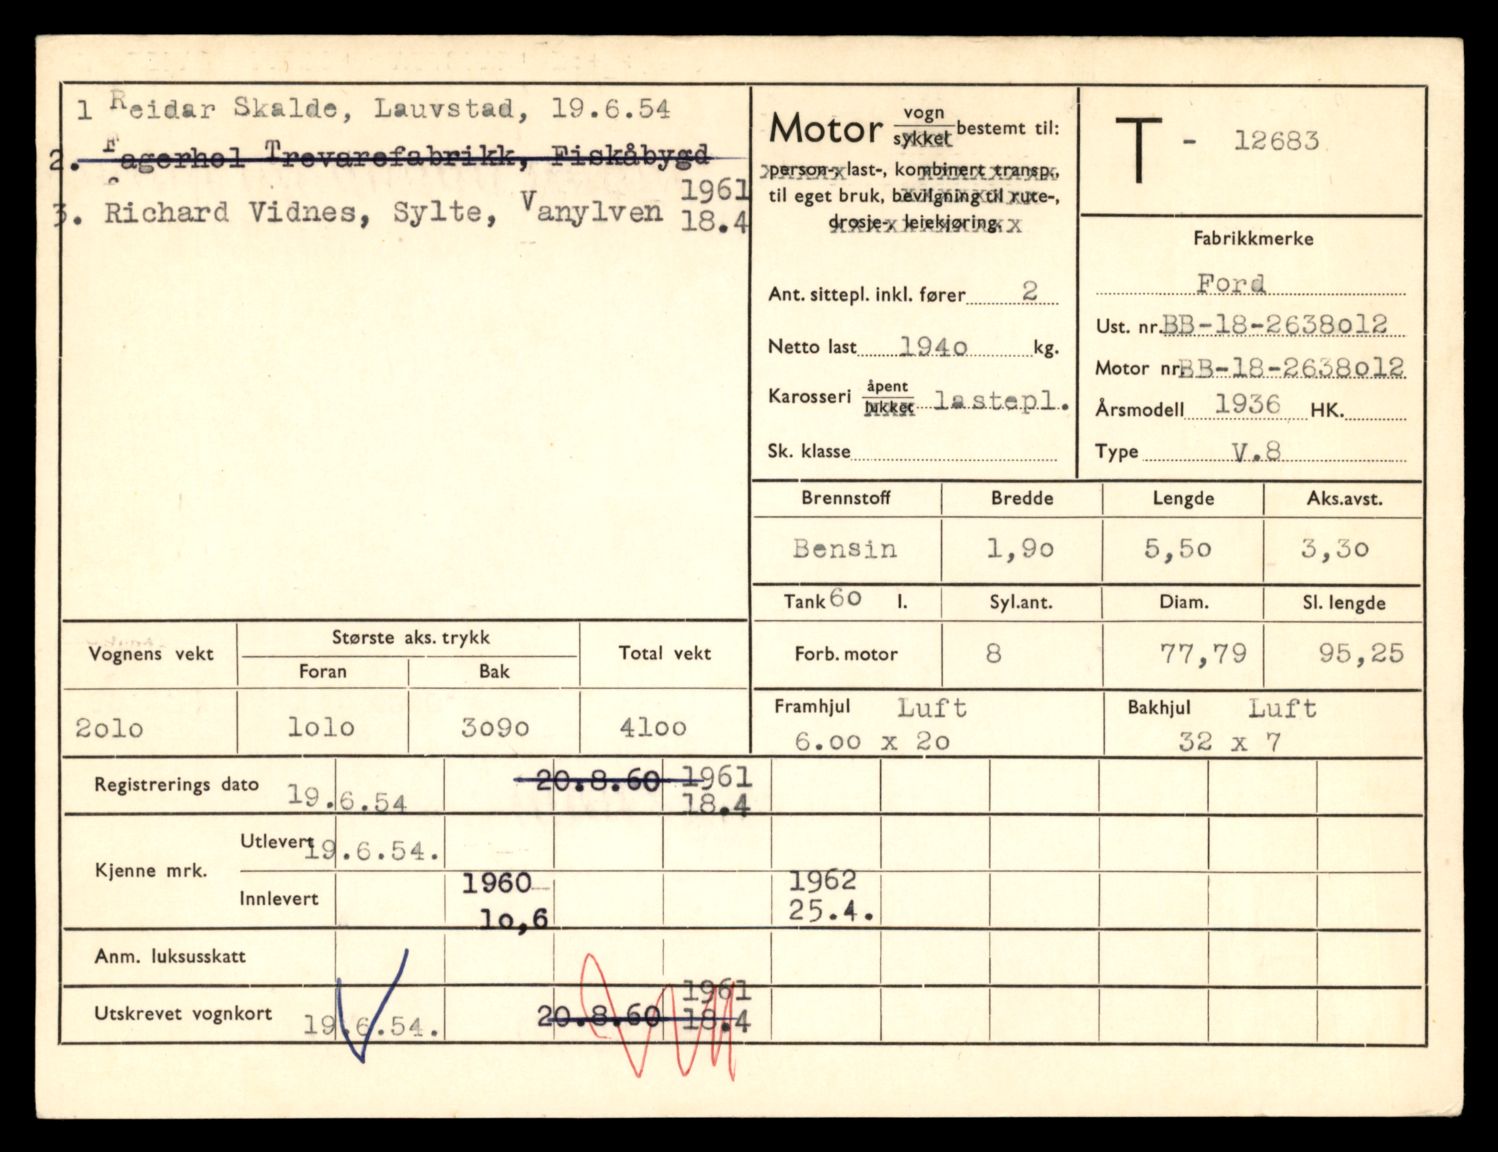 1 Reidar Skalde, Lauvstad, 19.6.54
2. Fagerhol Trevarefabrikk, Fiskåbygd
3. Richard Vidnes, Sylte, Vanylven 1961 18.4
Motor vogn sykkel bestemt til:
person-, last-, kombinert transp.,
til eget bruk, bevilgning til rute-,
drosje-, leiekjøring.
Ant. sittepl. inkl. fører 2
Netto last 194o kg.
Karosseri åpent lukket lastepl.
Sk. klasse
T - 12683
Fabrikkmerke
Ford
Ust. nr. BB-18-2638o12
Motor nr. BB-18-2638o12
Årsmodell 1936 HK.
Type V.8
Brennstoff Bredde Lengde Aks.avst.
Bensin 1,9o 5,5o 3,3o
Tank 6o l. Syl.ant. Diam. Sl. lengde
Forb. motor 8 77,79 95,25
Framhjul Luft Bakhjul Luft
6.oo x 2o 32 x 7
Vognens vekt Største aks. trykk Total vekt
Foran Bak
2o1o 1o1o 3o9o 41oo
Registrerings dato 19.6.54 20.8.60 1961 18.4
Kjenne mrk.
Utlevert 19.6.54.
Innlevert 1960 1o,6 1962 25.4.
Anm. luksusskatt
Utskrevet vognkort 19.6.54. 20.8.60 1961 18.4